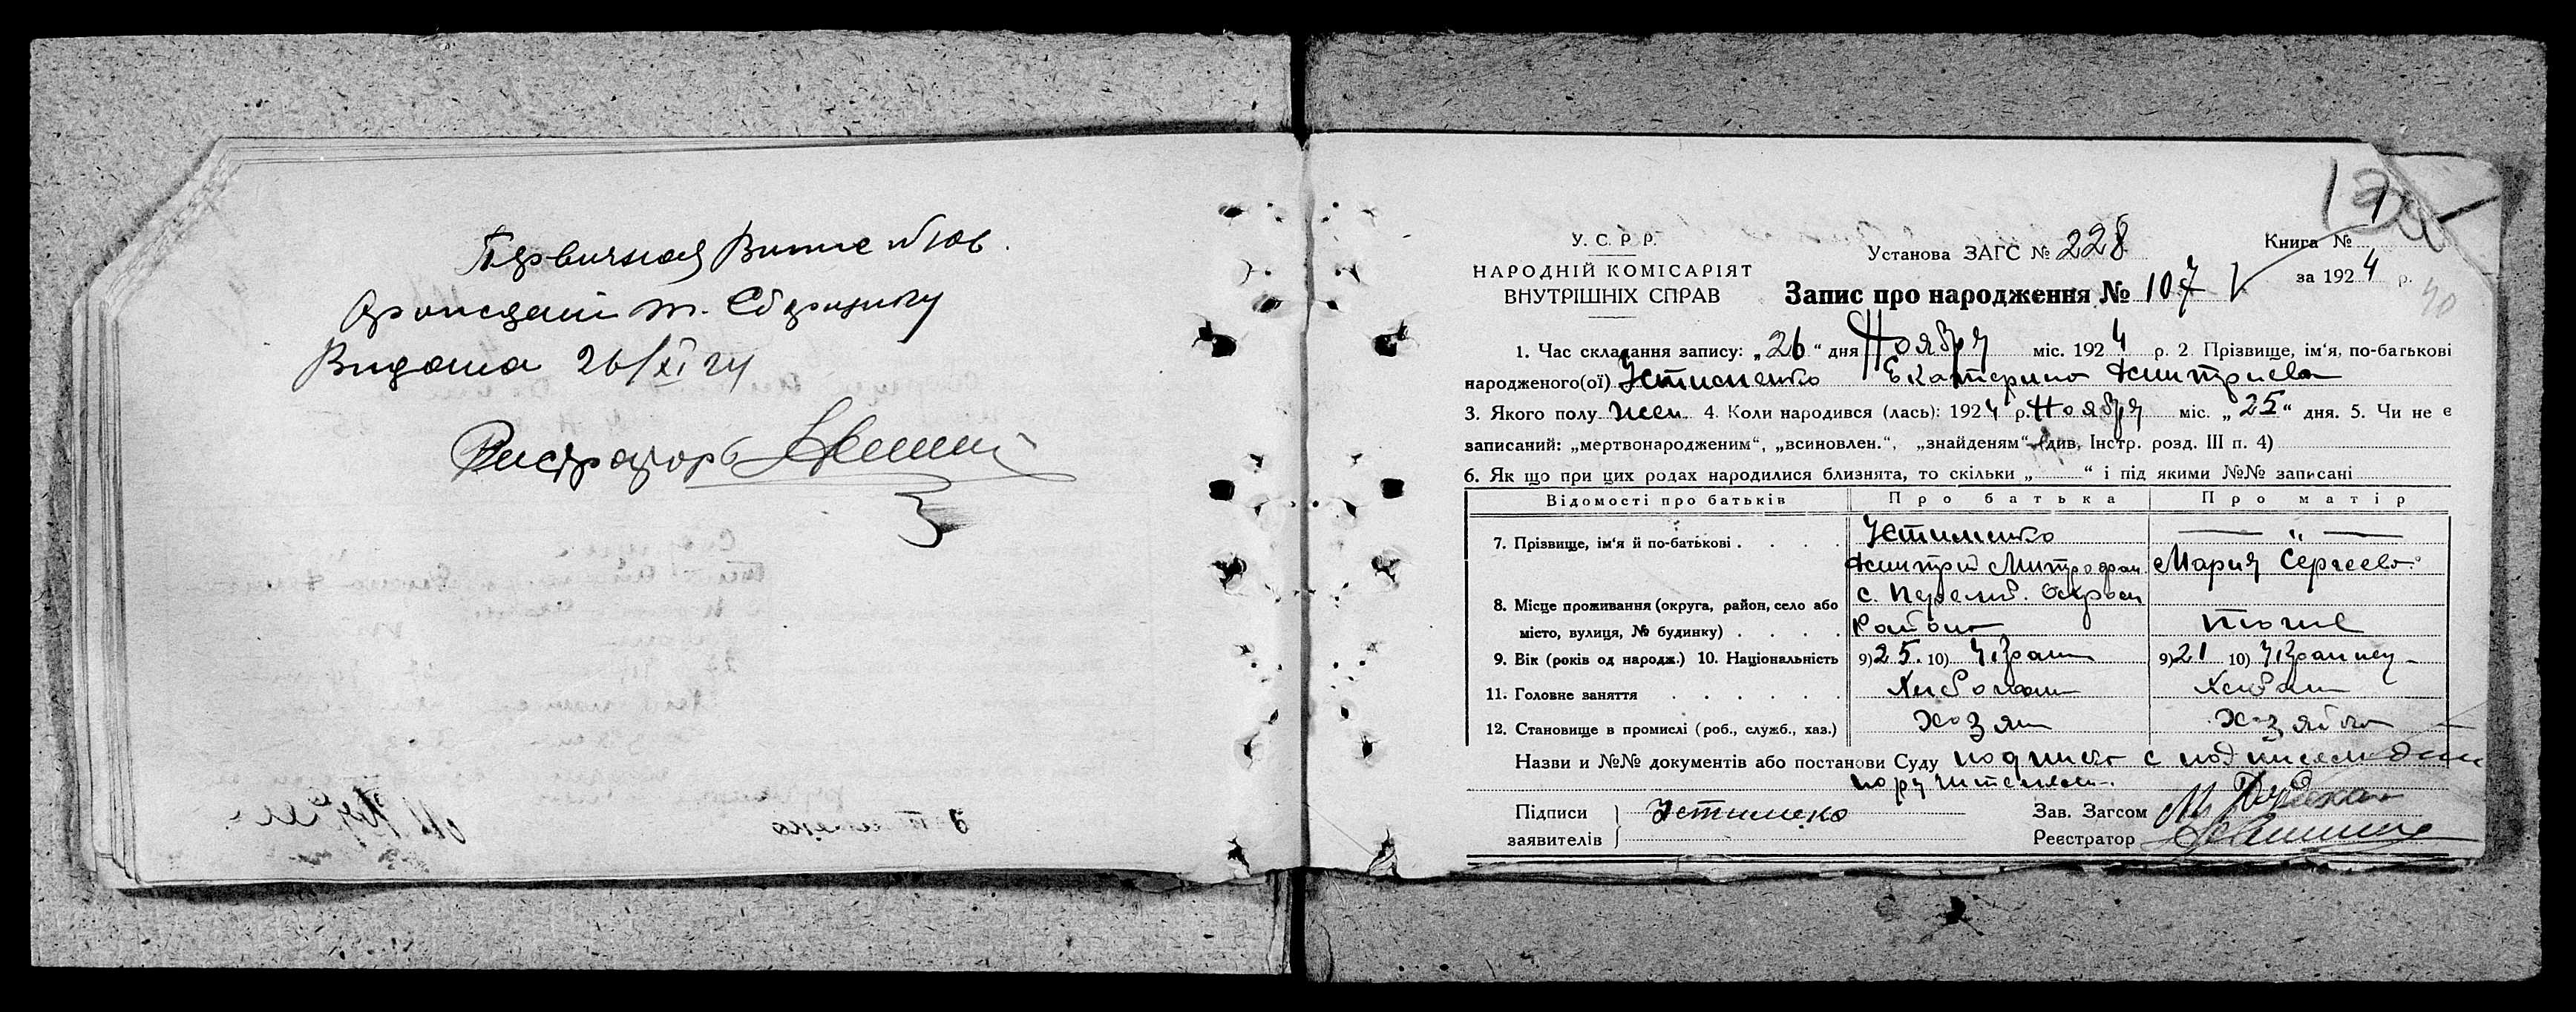 Первичная Выпись об
рождении т.
Видана 26/XI 24
Регистратор
У. С. Р. Р.
НАРОДНІЙ КОМІСАРІЯТ
ВНУТРІШНІХ СПРАВ
Установа ЗАГС № 228
Запис про народження № 107
Книга №
за 1924 р.
40
1. Час складання запису: „26“ дня Ноября міс. 1924 р. 2 Прізвище, ім'я, по-батькові
народженого(ої) Устименко Екатерина Дмитриева
3. Якого полу жен. 4. Коли народився (лась): 1924 р. Ноября міс. „25“ дня. 5. Чи не є
записаний: „мертвонародженим“, „всиновлен.“, „знайденям“ (див. Інстр. розд. III п. 4)
6. Як що при цих родах народилися близнята, то скільки „ “ і під якими №№ записані
Відомості про батьків Про батька Про матір
7. Прізвище, ім'я й по-батькові . . . . Устименко — „ —
Дмитрий Митрофан. Мария Сергеева
8. Місце проживання (округа, район, село або с.
місто, вулиця, № будинку) . . . . Района тоже
9. Вік (років од народж.) 10. Національність 9) 25. 10) Украин 9) 21 10) Украинец
11. Головне заняття . . . . . . Хлебопаш Хлебопаш
12. Становище в промислі (роб., служб., хаз.) хозяин хозяйка
Назви и №№ документів або постанови Суду подписка с
поручителями.
Підписи
заявителів
Устименко
Зав. Загсом
Реєстратор